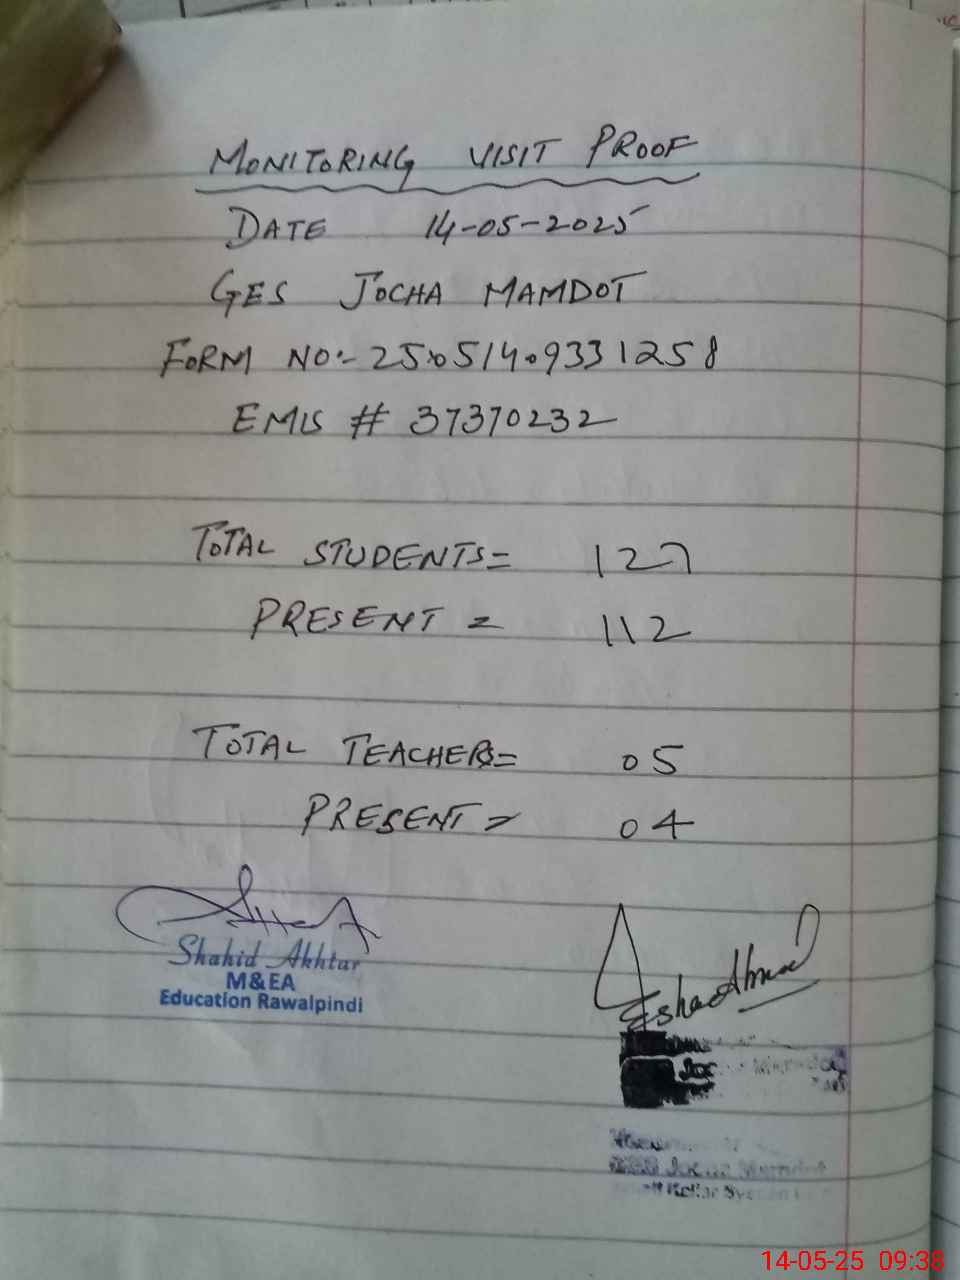 MONITORING VISIT PROOF
DATE 14-05-2025
GES JOCHA MAMDOT
FORM NO:- 250514.9331258
EMIS # 37370232
TOTAL STUDENTS= 127
PRESENT = 112
TOTAL TEACHERS= 05
PRESENT = 04
Shahid Akhtar
M&EA
Education Rawalpindi
14-05-25 09:38